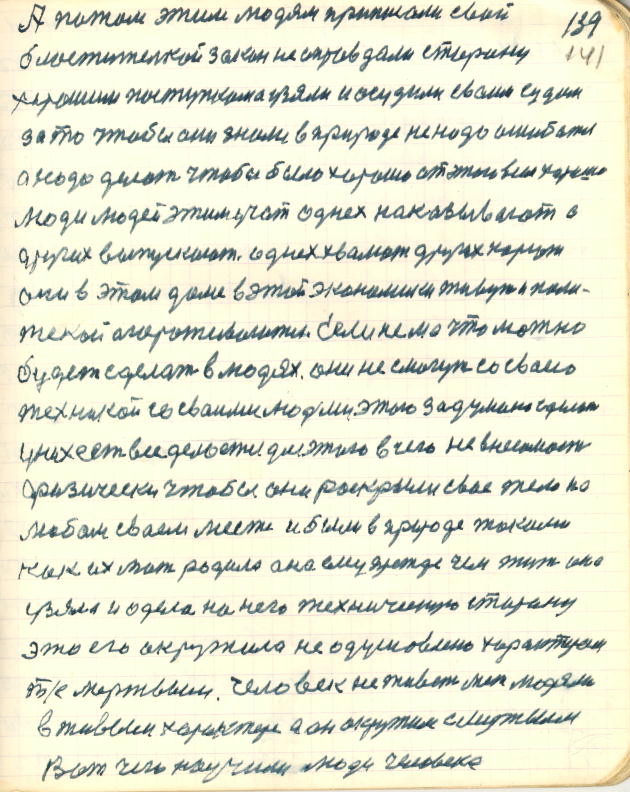 А потом этим людям приписали свой 139
блостителкой закон не оправдали старану 141
харошим поступкома узяли и осудили своим судом
за то чтобы они знали в природе не надо ошибатся
а надо делат чтобы было харошо от этого всем харошо
Люди людей этим учат однех наказывают а
других выпускают. однех хвалют других
они в этом доме в этой экономики живут и поли-
текой огорожеваются. Если нема что можно
будет сделат в людях. они не смогут со сваею
техникой со сваими людми этого задумано сделат
у них ест все делости для этого
физически чтобы они раскрыли свае тело на
любом сваем месте и были в природе такими
как их мат родила она ему прежде чем жит она
узяла и одела на него техническую старану
это его окружила не одушовлено характером
т/е мертвым. Человек не живет меж людями
в живым характере а он окружон смертным
Вот чего научили люди человека